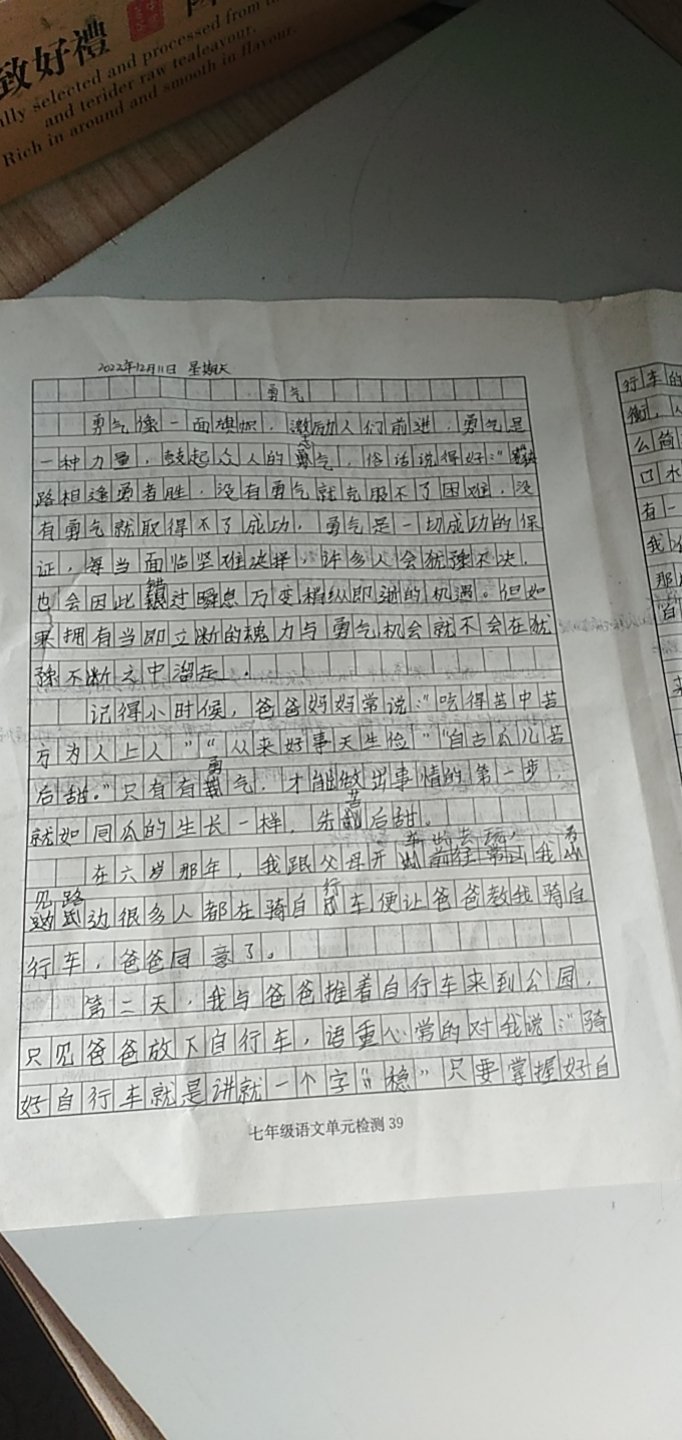 致好禮
lly selected and processed from
and terider raw tealeavour.
Rich in around and smooth in flavour.
2022年12月11日 星期天
勇气
勇气像一面旗帜，激励人们前进，勇气是
一种力量，鼓起众人的勇气，俗话说得好："狭
路相逢勇者胜，没有勇气就克服不了困难，没
有勇气就取得不了成功，勇气是一切成功的保
证，每当面临坚难决择，许多人会犹豫不决，
也会因此错过瞬息万变稍纵即逝的机遇。但如
果拥有当即立断的魂力与勇气机会就不会在犹
豫不断之中溜走。
记得小时候，爸爸妈妈常说："吃得苦中苦
方为人上人""从来好事天生俭""自古瓜儿苦
后甜。"只有有勇气，才能做出事情的第一步，
就如同瓜的生长一样，先苦后甜。
在六岁那年，我跟父母开车出去玩，我看
见路边很多人都在骑自行车便让爸爸教我骑自
行车，爸爸同意了。
第二天，我与爸爸推着自行车来到公园，
只见爸爸放下自行车，语重心常的对我说："骑
好自行车就是讲就一个字"稳"只要掌握好自
七年级语文单元检测 39
行车的
衡，
么简
口水
有一
我
那
"自
来